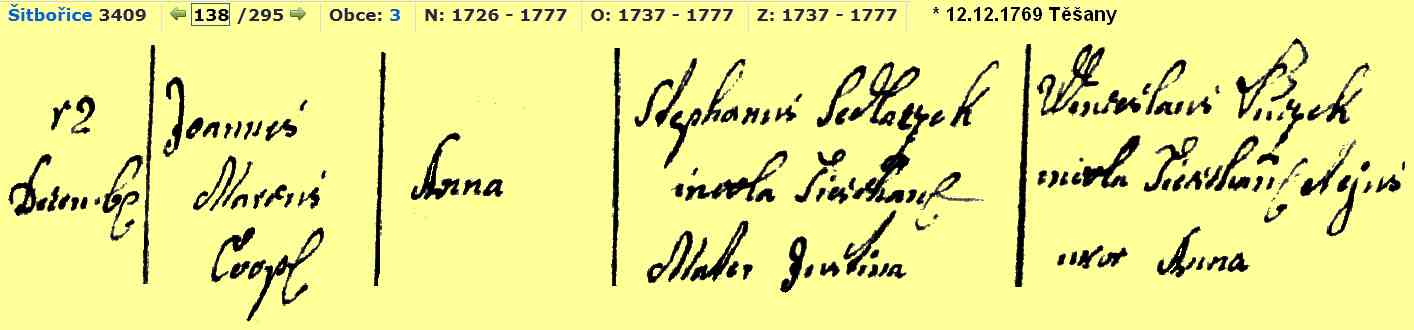 Šitbořice 3409 138 /295 Obce: 3 N: 1726 - 1777 O: 1737 - 1777 Z: 1737 - 1777 * 12.12.1769 Těšany
12 Joannes Stephanus Sedlaczek Wenceslaus
Decemb Marcus Anna incola incola ejus
Coop Mater Justina uxor Anna